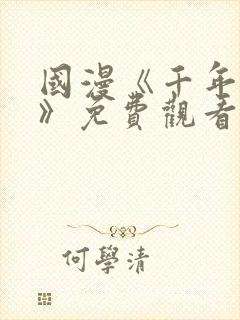 國漫《千年
》免費觀看
何學清